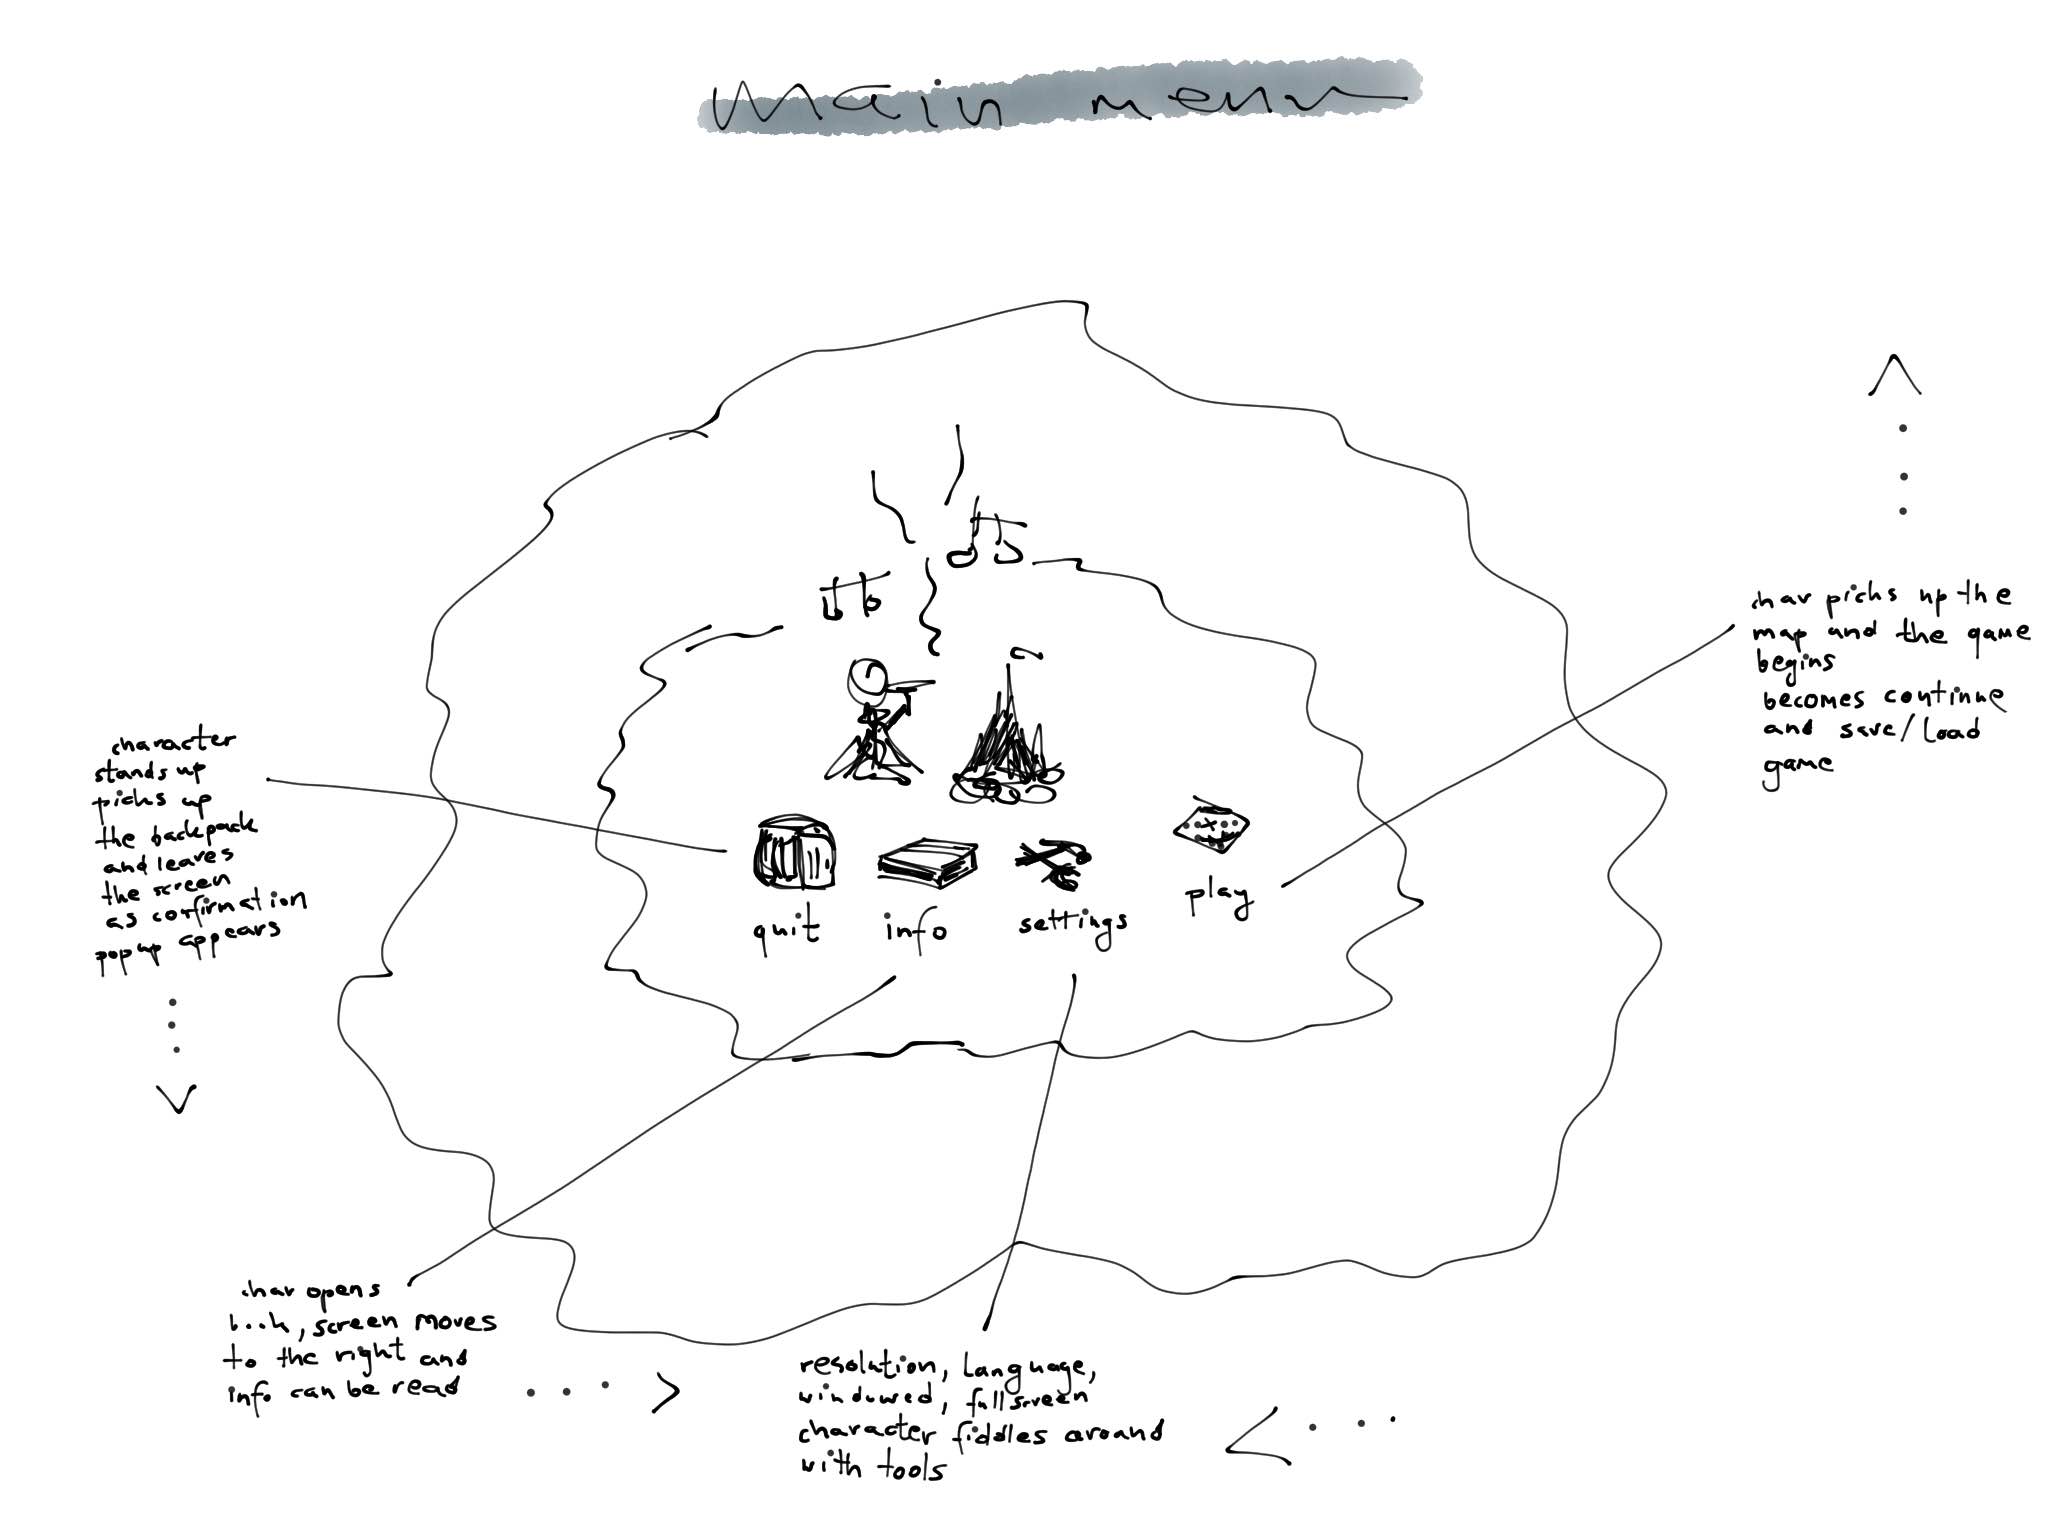 Main menu
char picks up the
map and the game
begins
becomes continue
and save/load
game
character
stands up
picks up
the backpack
and leaves
the screen
as confirmation
popup appears
quit
info
settings
play
char opens
book, screen moves
to the right and
info can be read
resolution, language,
windowed, fullscreen
character fiddles around
with tools